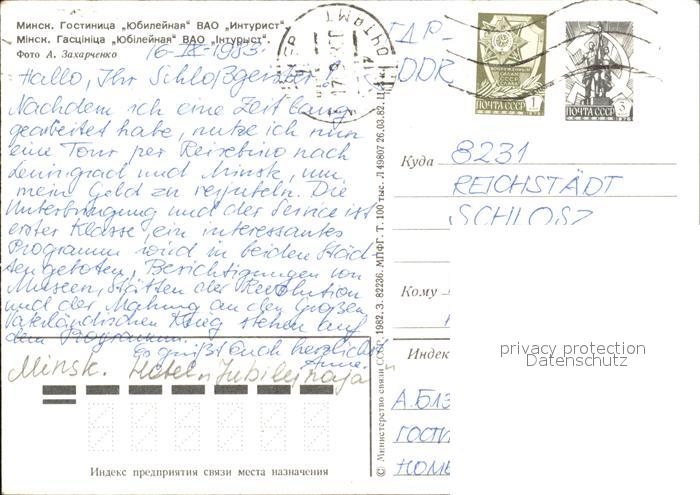 Минск. Гостиница „Юбилейная“ ВАО „Интурист“.
Мінск. Гасцініца „Юбілейная“ ВАО „Інтурыст“.
Фото А. Захарченко
16-IX-1983.
Hallo, Ihr Schloßgeister!
Nachdem ich eine Zeit lang
gearbeitet habe, nutze ich nun
eine Tour per Reisebüro nach
Leningrad und Minsk, um
mein Geld zu verputeln. Die
Unterbringung und der Service ist
erster Klasse, ein interessantes
Programm wird in beiden Städ-
ten geboten, Besichtigungen von
Museen, Stätten der Revolution
und der Mahnung an den Großen
Vaterländischen Krieg stehen auf
dem Programm.
Es grüßt Euch herzlichst
Anne.
Minsk. Hotel „Jubilejnaja“
Индекс предприятия связи места назначения
© Министерство связи СССР, 1982. З. 82236. МПФГ. Т. 100 тыс. Л 49807 26.03.82.
ПОЧТА СССР 1
ПОЧТА СССР 3
ГДР-
DDR
Куда 8231
REICHSTÄDT
SCHLOSZ
Кому
Индекс
privacy protection
Datenschutz